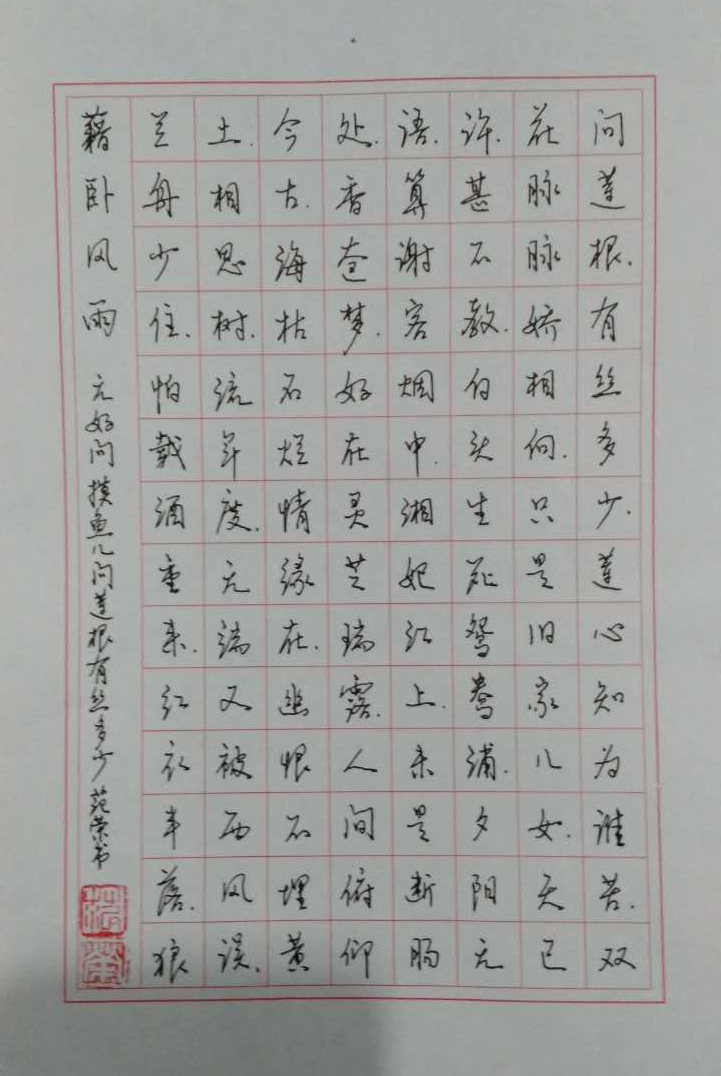 问莲根.有丝多少.莲心知为谁苦.双
花脉脉娇相向.只是旧家儿女.天已
许.甚不教.白头生死鸳鸯浦.夕阳无
语.算谢客烟中.湘妃江上.未是断肠
处.香奁梦.好在灵芝瑞露.人间俯仰
今古.海枯石烂情缘在.幽恨不埋黄
土.相思树.流年度.无端又被西风误.
兰舟少住.怕载酒重来.红衣半落.狼
藉卧风雨 元好问摸鱼儿问莲根有丝多少 范荣书
范荣